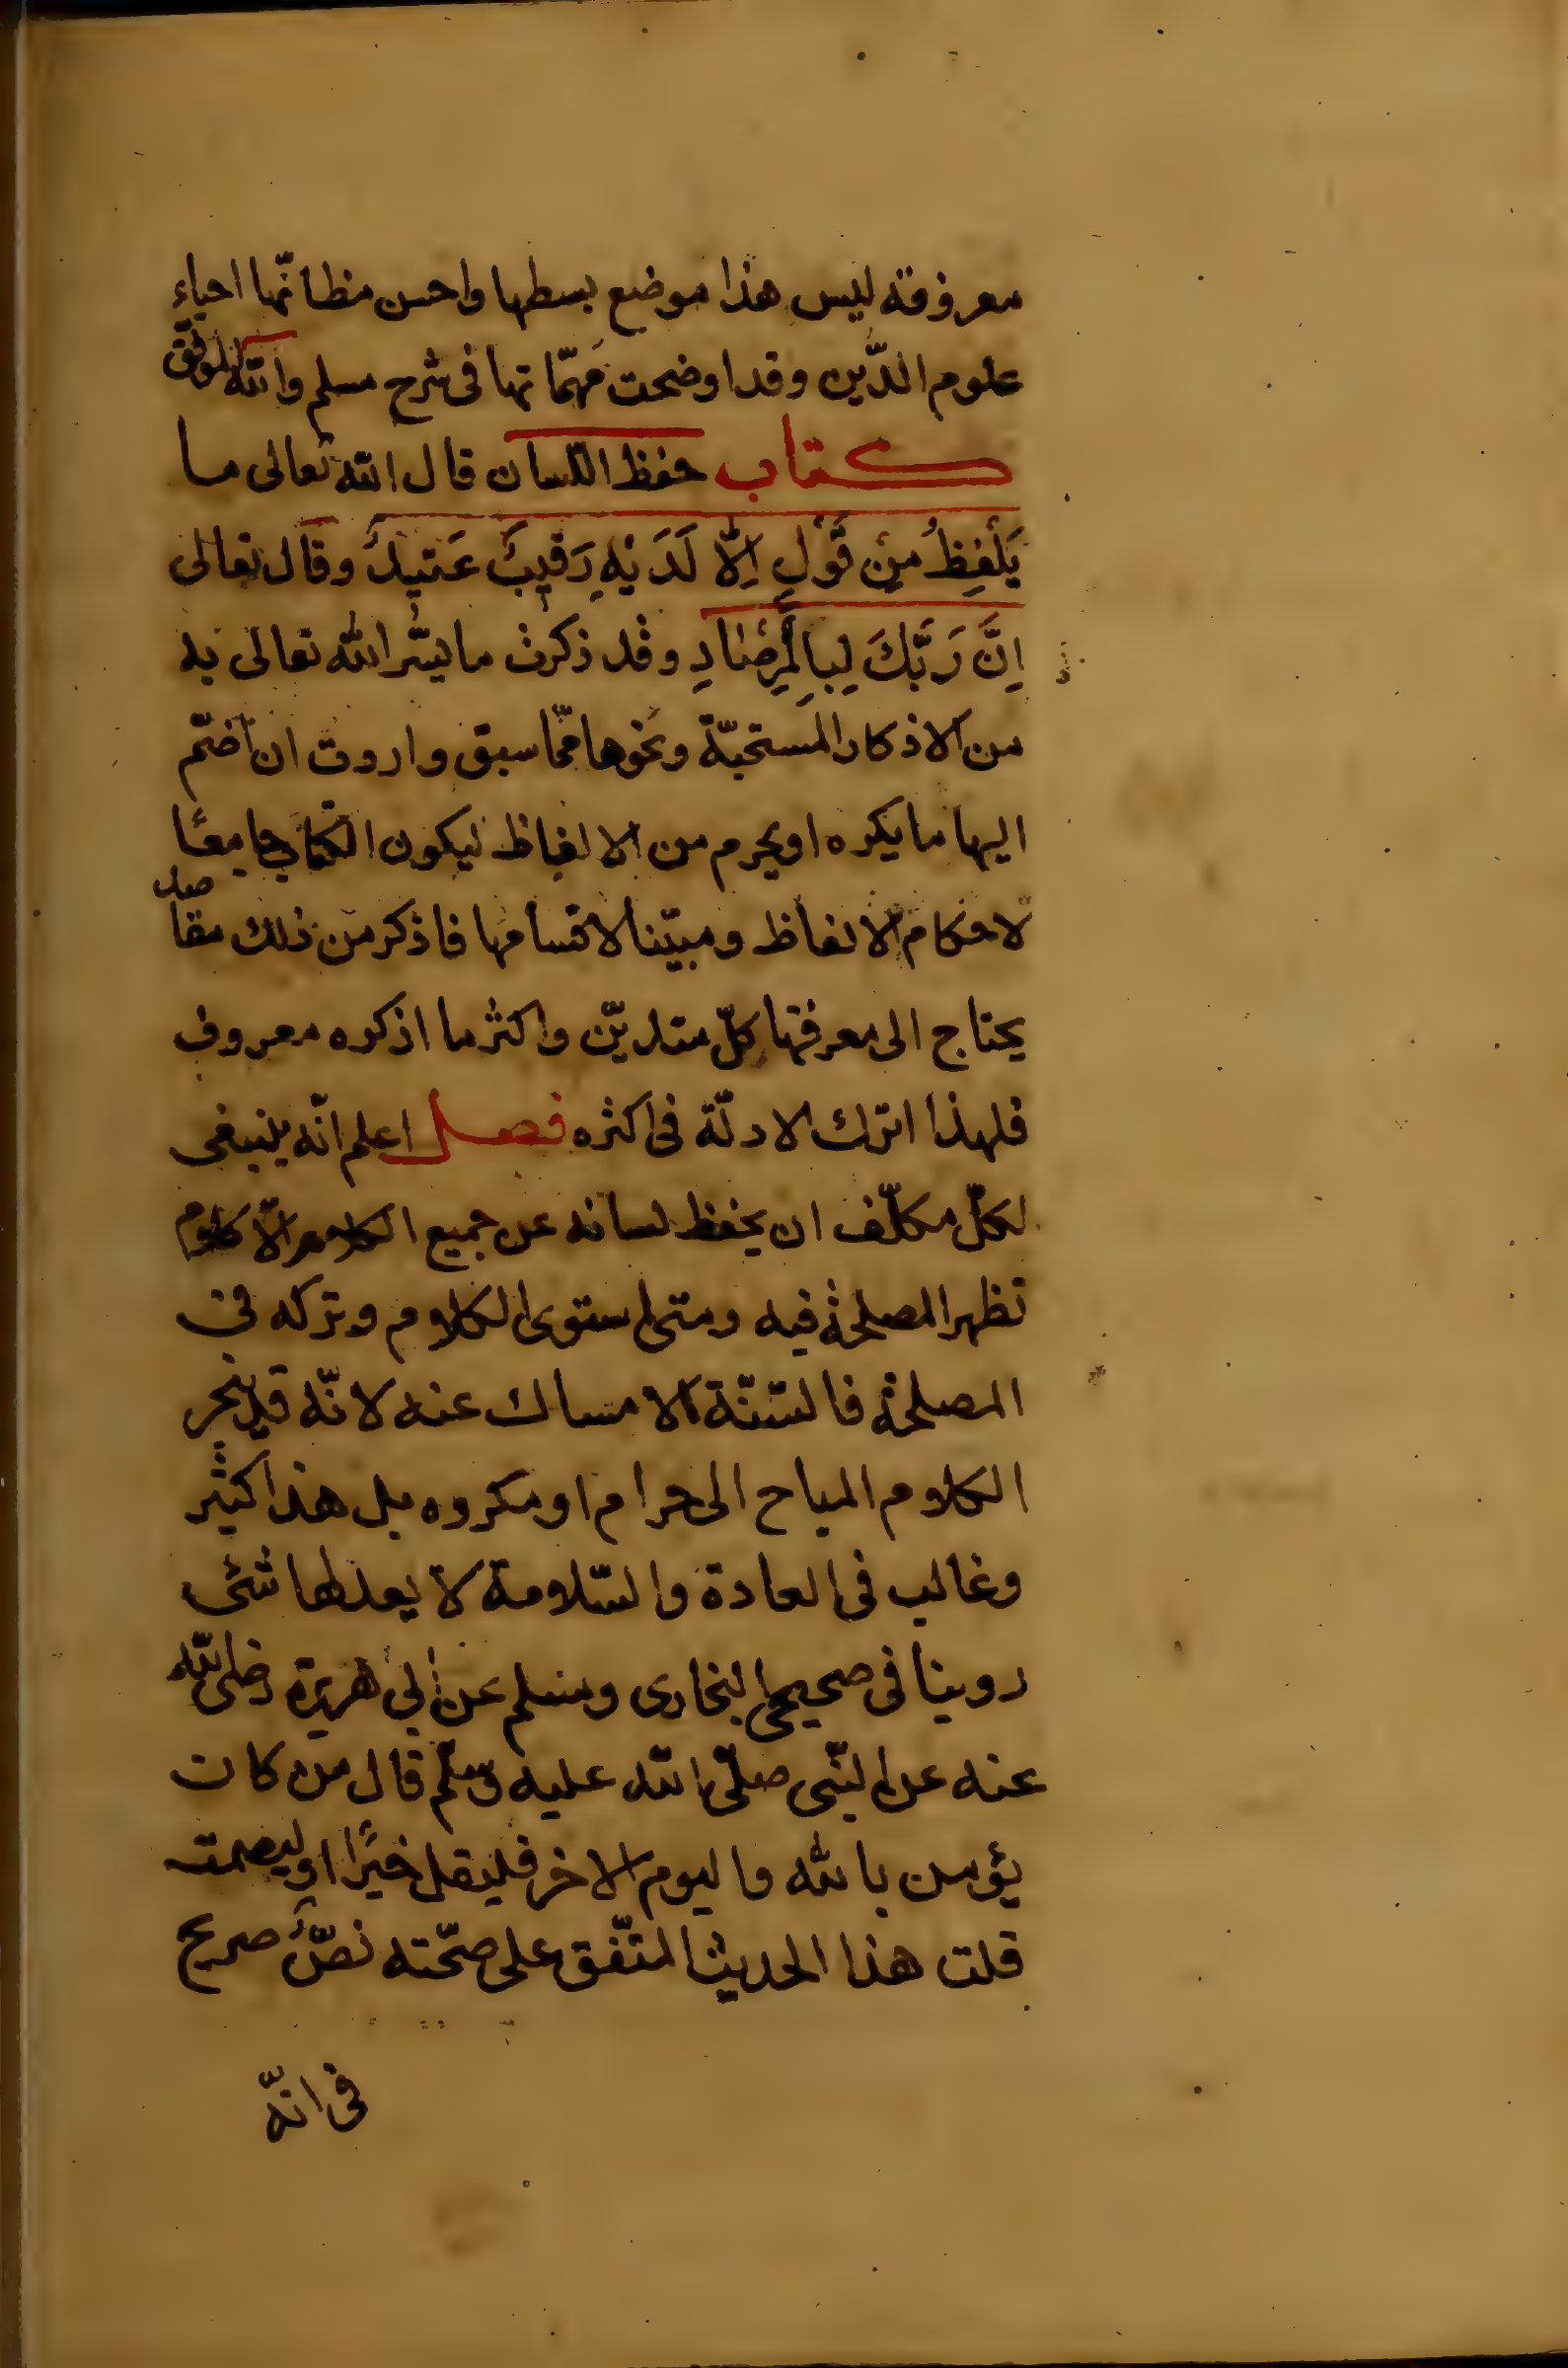 معروفة ليس هذا موضع بسطها واحسن مظانّها احياء
علوم الدّين وقد اوضحت مهمّاتها فى شرح مسلم والله الموفّق
كتاب حفظ اللّسان قال الله تعالى ما
يَلْفِظُ مِنْ قَوْلٍ اِلّا لَدَيْهِ رَقيبٌ عَتيدٌ وقال تعالى
اِنَّ رَبَّكَ لَبِالْمِرْصَادِ وقد ذكرت ما يسّر الله تعالى به
من الاذكار المستحبّة ونحوها ممّا سبق واردت ان اضمّ
اليها ما يكره او يحرم من الالفاظ ليكون الكتاب جامعًا
لاحكام الالفاظ ومبيّنا لاقسامها فاذكر من ذلك مقاصد
يحتاج الى معرفتها كلّ متديّن واكثر ما اذكره معروف
فلهذا اترك الادلّة فى اكثره فصل اعلم انّه ينبغى
لكلّ مكلّف ان يحفظ لسانه عن جميع الكلام الّا كلاما
تظهر المصلحة فيه ومتى استوى الكلام وتركه فى
المصلحة فالسّنّة الامساك عنه لانّه قد ينجر
الكلام المباح الى حرام او مكروه بل هذا كثير
وغالب فى العادة والسّلامة لا يعدلها شئ
روينا فى صحيحى البخارى ومسلم عن ابى هريرة رضى الله
عنه عن النّبى صلّى الله عليه وسلّم قال من كان
يؤمن بالله واليوم الاخر فليقل خيرًا او ليصمت
قلت هذا الحديث المتّفق على صحّته نصٌّ صريح
فى انّه